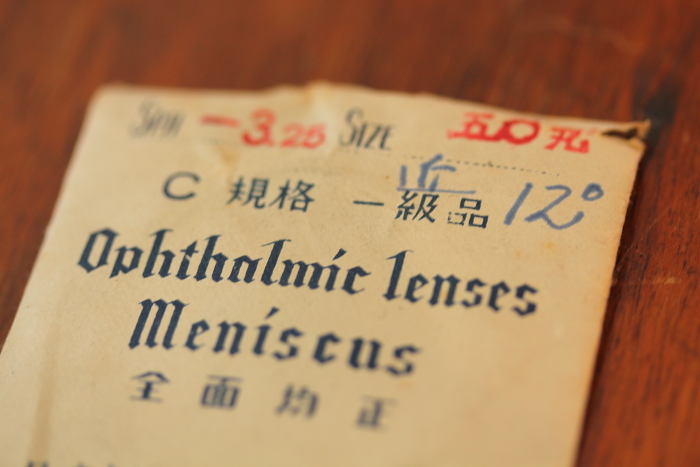 SPH -3.25 SIZE 五〇丸
近
C 規格 一級品 12°
Ophthalmic lenses
Meniscus
全面均正